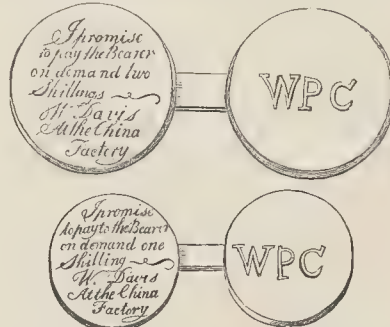 I promise
to pay the Bearer
on demand two
Shillings
W. Davis
At the China
Factory
WPC
I promise
to pay to the Bearer
on demand one
Shilling
W. Davis
At the China
Factory
WPC